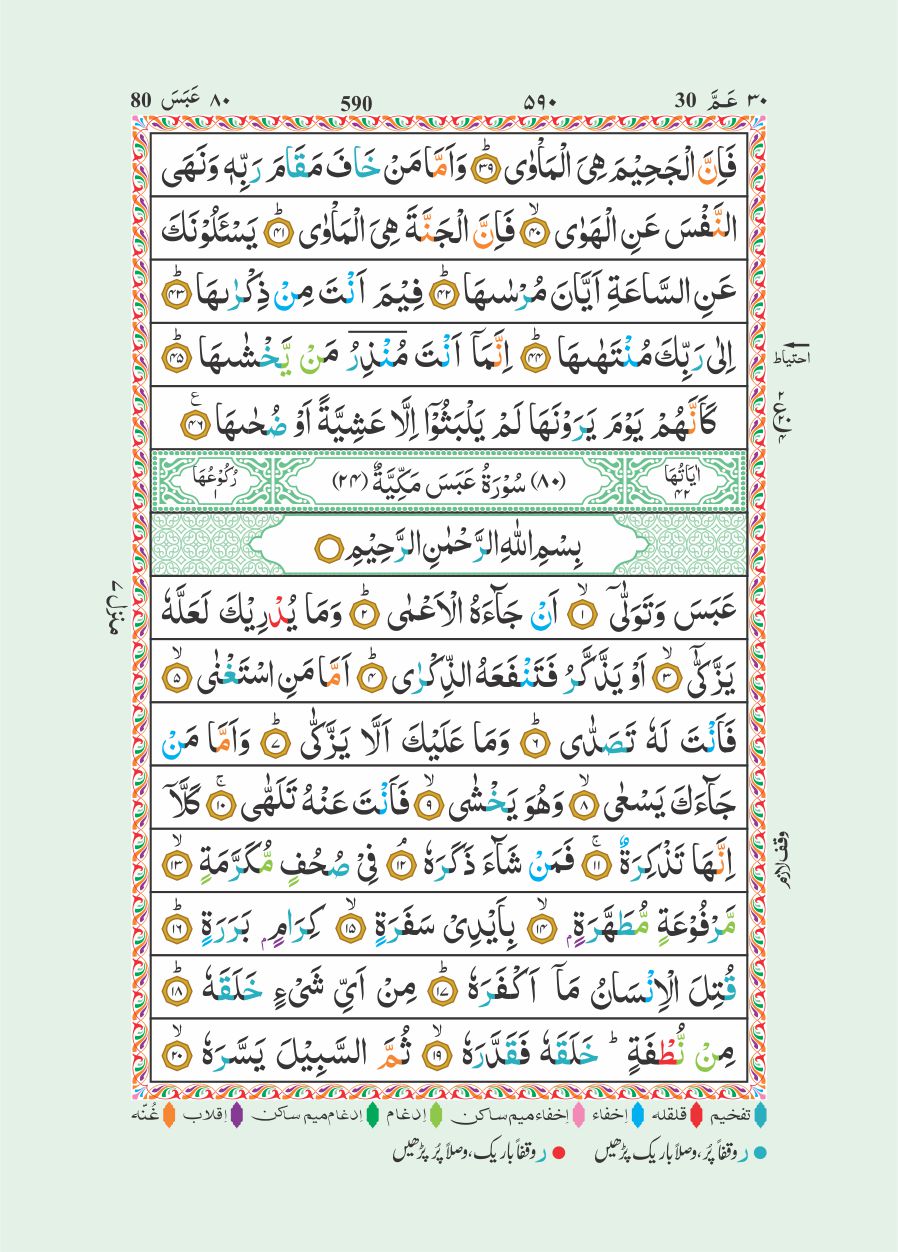 ٣٠ عَـمَّ 30 ۵۹۰ 590 ٨٠ عَبَسَ 80
فَاِنَّ الْجَحِيْمَ هِيَ الْمَاْوٰى ؕ﴿۳۹﴾ وَاَمَّا مَنْ خَافَ مَقَامَ رَبِّهٖ وَنَهَى
النَّفْسَ عَنِ الْهَوٰى ۙ﴿۴۰﴾ فَاِنَّ الْجَنَّةَ هِيَ الْمَاْوٰى ؕ﴿۴۱﴾ يَسْـَٔلُوْنَكَ
عَنِ السَّاعَةِ اَيَّانَ مُرْسٰىهَا ؕ﴿۴۲﴾ فِيْمَ اَنْتَ مِنْ ذِكْرٰىهَا ؕ﴿۴۳﴾
اِلٰى رَبِّكَ مُنْتَهٰىهَا ؕ﴿۴۴﴾ اِنَّمَاۤ اَنْتَ مُنْذِرُ مَنْ يَّخْشٰىهَا ؕ﴿۴۵﴾
احتیاط
كَاَنَّهُمْ يَوْمَ يَرَوْنَهَا لَمْ يَلْبَثُوْۤا اِلَّا عَشِيَّةً اَوْ ضُحٰىهَا ﴿۴۶﴾ع
ع
اٰيَاتُهَا ۴۲ (۸۰) سُوْرَةُ عَبَسَ مَكِّيَّةٌ (۲۴) رُكُوْعُهَا ۱
بِسْمِ اللّٰهِ الرَّحْمٰنِ الرَّحِيْمِ
منزل ۷
عَبَسَ وَتَوَلّٰىۤ ۙ﴿۱﴾ اَنْ جَآءَهُ الْاَعْمٰى ؕ﴿۲﴾ وَمَا يُدْرِيْكَ لَعَلَّهٗ
يَزَّكّٰىۤ ۙ﴿۳﴾ اَوْ يَذَّكَّرُ فَتَنْفَعَهُ الذِّكْرٰى ؕ﴿۴﴾ اَمَّا مَنِ اسْتَغْنٰى ۙ﴿۵﴾
فَاَنْتَ لَهٗ تَصَدّٰى ؕ﴿۶﴾ وَمَا عَلَيْكَ اَلَّا يَزَّكّٰى ؕ﴿۷﴾ وَاَمَّا مَنْ
جَآءَكَ يَسْعٰى ۙ﴿۸﴾ وَهُوَ يَخْشٰى ۙ﴿۹﴾ فَاَنْتَ عَنْهُ تَلَهّٰى ۚ﴿۱۰﴾ كَلَّاۤ
اِنَّهَا تَذْكِرَةٌ ۚ﴿۱۱﴾ فَمَنْ شَآءَ ذَكَرَهٗ ۘ﴿۱۲﴾ فِيْ صُحُفٍ مُّكَرَّمَةٍ ۙ﴿۱۳﴾
وقف لازم
مَّرْفُوْعَةٍ مُّطَهَّرَةٍۭ ۙ﴿۱۴﴾ بِاَيْدِيْ سَفَرَةٍ ۙ﴿۱۵﴾ كِرَامٍۭ بَرَرَةٍ ؕ﴿۱۶﴾
قُتِلَ الْاِنْسَانُ مَاۤ اَكْفَرَهٗ ؕ﴿۱۷﴾ مِنْ اَيِّ شَيْءٍ خَلَقَهٗ ؕ﴿۱۸﴾
مِنْ نُّطْفَةٍ ؕ خَلَقَهٗ فَقَدَّرَهٗ ۙ﴿۱۹﴾ ثُمَّ السَّبِيْلَ يَسَّرَهٗ ۙ﴿۲۰﴾
تفخیم قلقله اِخفاء اِخفاءمیم ساکن اِدغام اِدغام میم ساکن اِقلاب غُنّه
ر وقفاً پُر، وصلاً باریک پڑھیں ر وقفاً باریک، وصلاً پُر پڑھیں